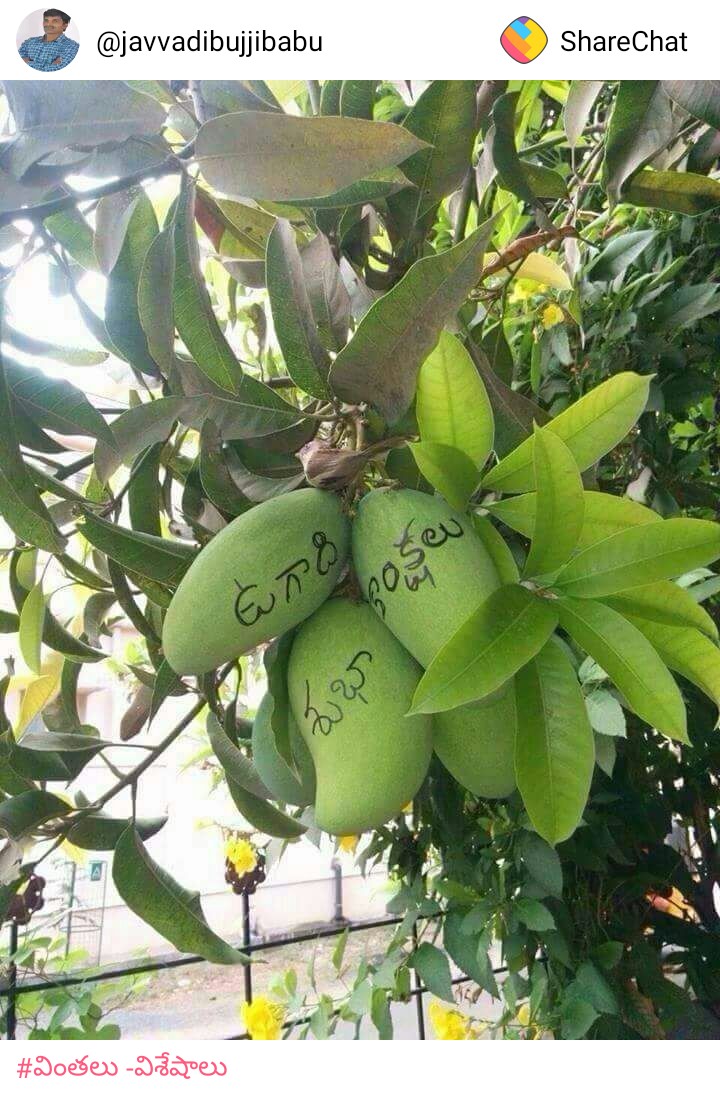 @javvadibujjibabu
ShareChat
ఉగాది
శుభా
కాంక్షలు
#వింతలు -విశేషాలు